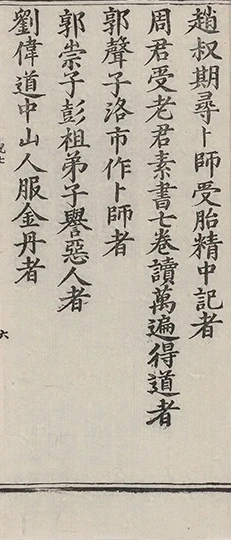 趙叔期尋卜師受胎精中記者
周君受老君素書七卷讀萬遍得道者
郭聲子洛市作卜師者
郭崇子彭祖弟子譽惡人者
劉偉道中山人服金丹者
六